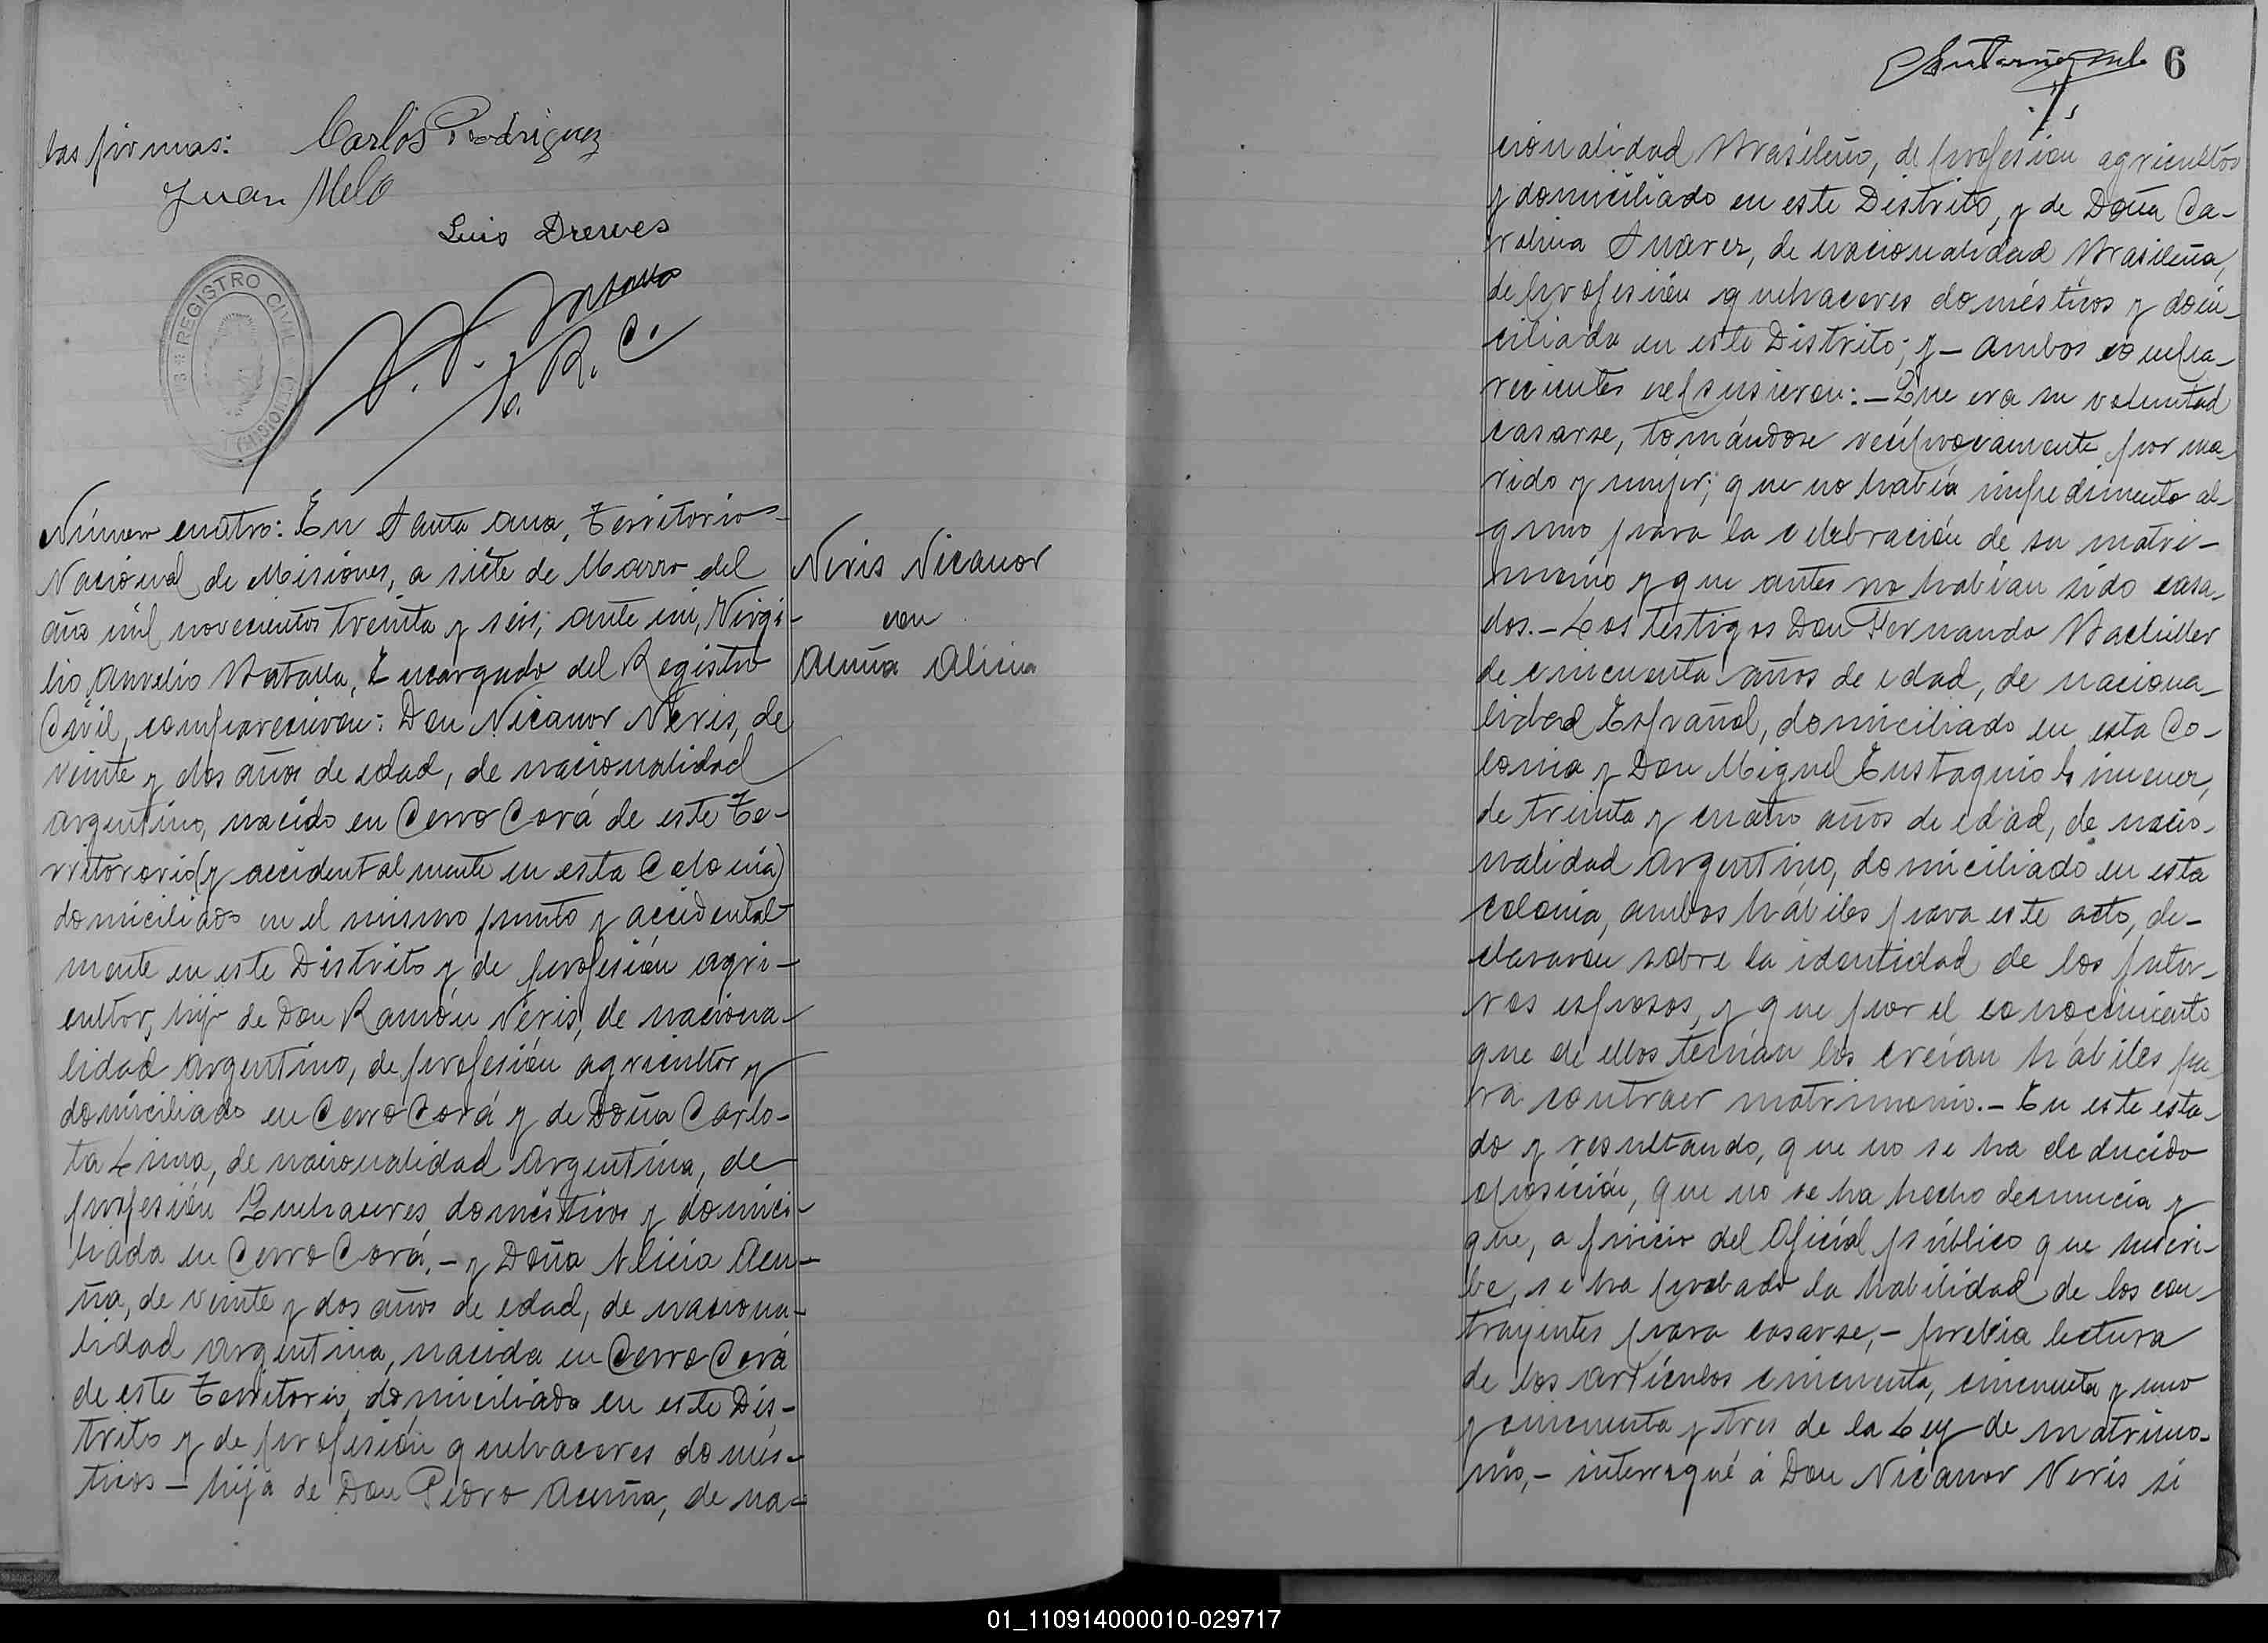 las firmas: Carlos Rodriguez
Juan Melo
Luis Drewes
REGISTRO CIVIL
R. C.
Número cuatro: En Santa Ana, Territorio
Nacional de Misiones, a siete de Marzo del
año mil novecientos treinta y seis, ante mi, Virgi-
lio Aurelio Batalla, Encargado del Registro
Civil, comparecieron: Don Nicanor Neris, de
veinte y dos años de edad, de nacionalidad
Argentino, nacido en Cerro Corá de este Te-
rritororio (y accidentalmente en esta Colonia)
domiciliado en el mismo punto y accidental-
mente en este Distrito y de profesión agri-
cultor, hijo de Don Ramón Neris, de naciona-
lidad Argentino, de profesión agricultor y
domiciliado en Cerro Corá y de Doña Carlo-
ta Lima, de nacionalidad Argentina, de
profesión Quehaceres domésticos y domici-
liada en Cerro Corá, - y Doña Alicia Acu-
ña, de veinte y dos años de edad, de naciona-
lidad Argentina, nacida en Cerro Corá
de este Territorio, domiciliada en este Dis-
trito y de profesión quehaceres domés-
ticos - hija de Don Pedro Acuña, de na-
Neris Nicanor
con
Acuña Alicia
6
cionalidad Brasileño, de profesión agricultor
y domiciliado en este Distrito, y de Doña Ca-
rolina Suarez, de nacionalidad Brasileña,
de profesión quehaceres domésticos y domi-
ciliada en este Distrito; y - ambos compa-
recientes expusieron: - Que era su voluntad
casarse, tomándose recíprocamente por ma-
rido y mujer; que no había impedimento al-
guno para la celebración de su matri-
monio y que antes no habían sido casa-
dos. - Los testigos Don Fernando Bachiller
de cincuenta años de edad, de naciona-
lidad Español, domiciliado en esta Co-
lonia y Don Miguel Eustaquio Gimenez,
de treinta y cuatro años de edad, de nacio-
nalidad Argentino, domiciliado en esta
colonia, ambos hábiles para este acto, de-
clararon sobre la identidad de los futu-
ros esposos, y que por el conocimiento
que de ellos tenían los creían hábiles pa-
ra contraer matrimonio. - En este esta-
do y resultando, que no se ha deducido
oposición, que no se ha hecho denuncia y
que, a juicio del Oficial público que suscri-
be, se ha probado la habilidad de los con-
trayentes para casarse, - previa lectura
de los artículos cincuenta, cincuenta y uno
y cincuenta y tres de la Ley de matrimo-
nio, - interrogué á Don Nicanor Neris si
01_110914000010-029717